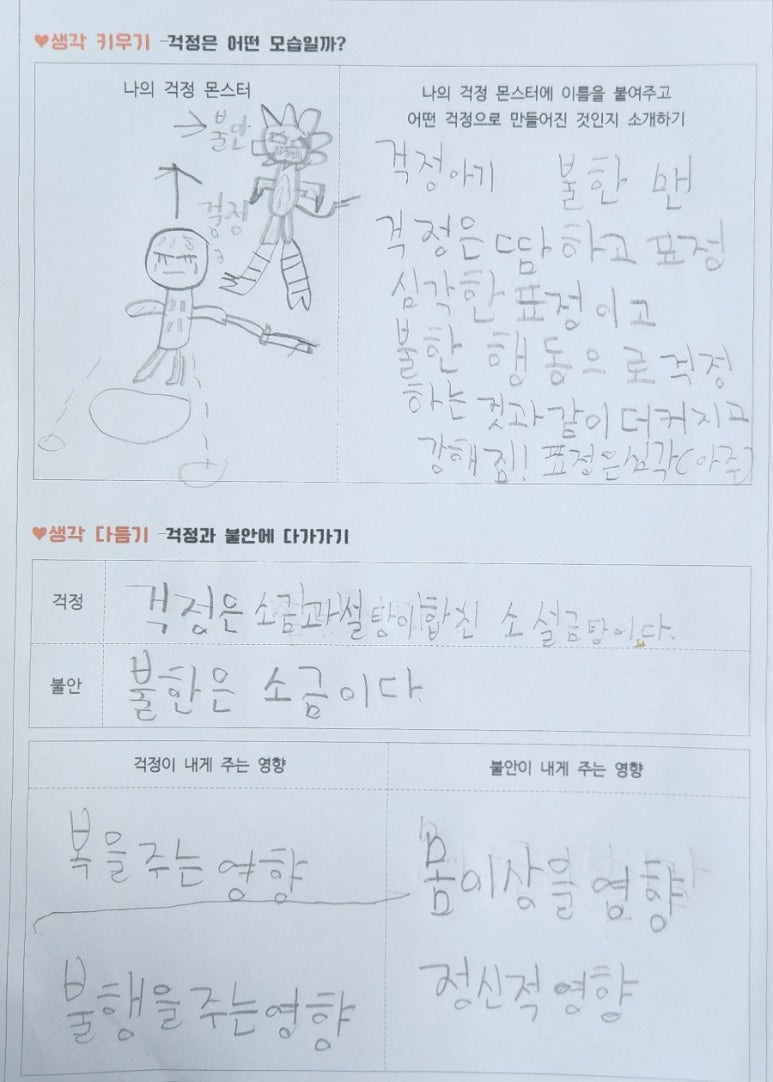 ♥생각 키우기 -걱정은 어떤 모습일까?
나의 걱정 몬스터
→불안
걱정
나의 걱정 몬스터에 이름을 붙여주고
어떤 걱정으로 만들어진 것인지 소개하기
걱정아기 불한 맨
걱정은 땀하고 표정
심각한 표정이고
불한 행동으로 걱정
하는 것과 같이 더커지고
강해짐! 표정은심각(아주)
♥생각 다듬기 -걱정과 불안에 다가가기
걱정
걱정은 소금과설탕이합친 소설금탕이다.
불안
불한은 소금이다
걱정이 내게 주는 영향
불안이 내게 주는 영향
복을주는 영향
몸이상을 영향
불행을주는영향
정신적 영향